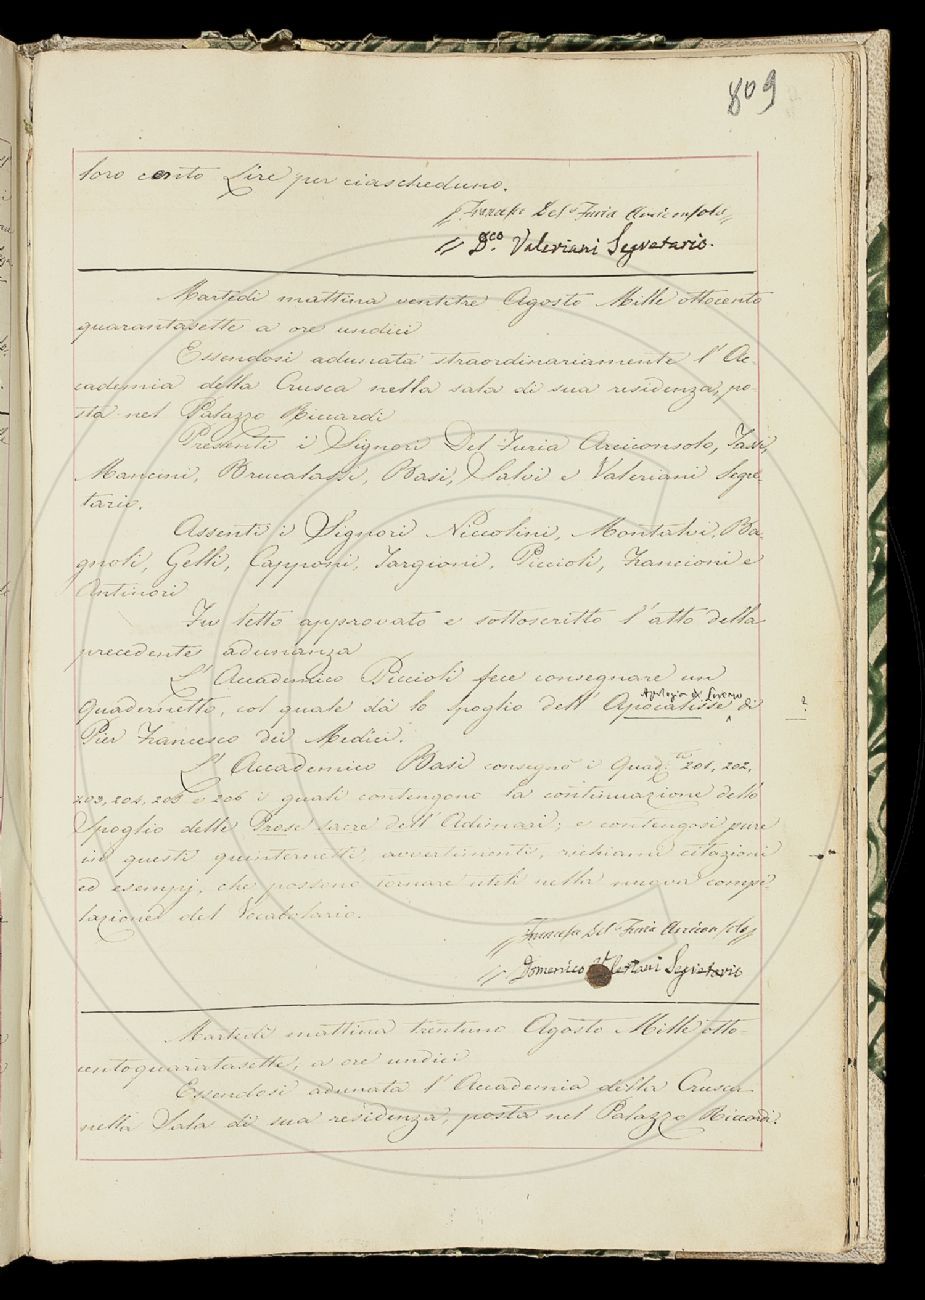 809
loro cento Lire per ciascheduno.
Francesco Del Furia Arciconsolo
Dco. Valeriani Segretario.
Martedì mattina ventitre Agosto Mille ottocento
quarantasette a ore undici
Essendosi adunata straordinariamente l'Ac-
cademia della Crusca nella sala di sua residenza, po-
sta nel Palazzo Riccardi
Presenti i Signori Del-Furia Arciconsolo, Tassi,
Mancini, Brucalassi, Basi, Salvi e Valeriani Segre-
tario.
Assenti i Signori Niccolini, Montalvi, Ba-
gnoli, Gelli, Capponi, Targioni, Piccioli, Francioni e
Antinori
Fu letto approvato e sottoscritto l'atto della
precedente adunanza
L'Accademico Piccioli fece consegnare un
Apologia di Lorenzo
Quadernetto, col quale dà lo spoglio dell'Apocalisse di ?
Pier Francesco dei Medici.
L'Accademico Basi consegnò i Quad. 201, 202,
203, 204, 205 e 206 i quali contengono la continuazione dello
Spoglio delle Prose sacre dell'Adimari; e contengosi pure
in questi quinternetti, avvertimenti, richiami citazioni
ed esempj, che possono tornare utili nella nuova compi-
lazione del Vocabolario.
Francesco Del Furia Arciconsolo
Domenico Valeriani Segretario
Martedì mattina trentuno Agosto Mille otto-
centoquarantasette, a ore undici
Essendosi adunata l'Accademia della Crusca
nella Sala di sua residenza, posta nel Palazzo Riccardi.